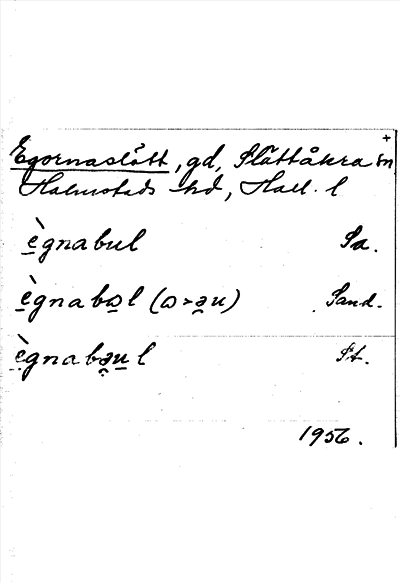 +
Egornaslått, gd, Slättåkra sn
Halmstads hd, Hall. l
ègnabul Sa.
ègnabo̲l (o>ə̯u) Sand.
ègnabə̯u̲l St.
1956.